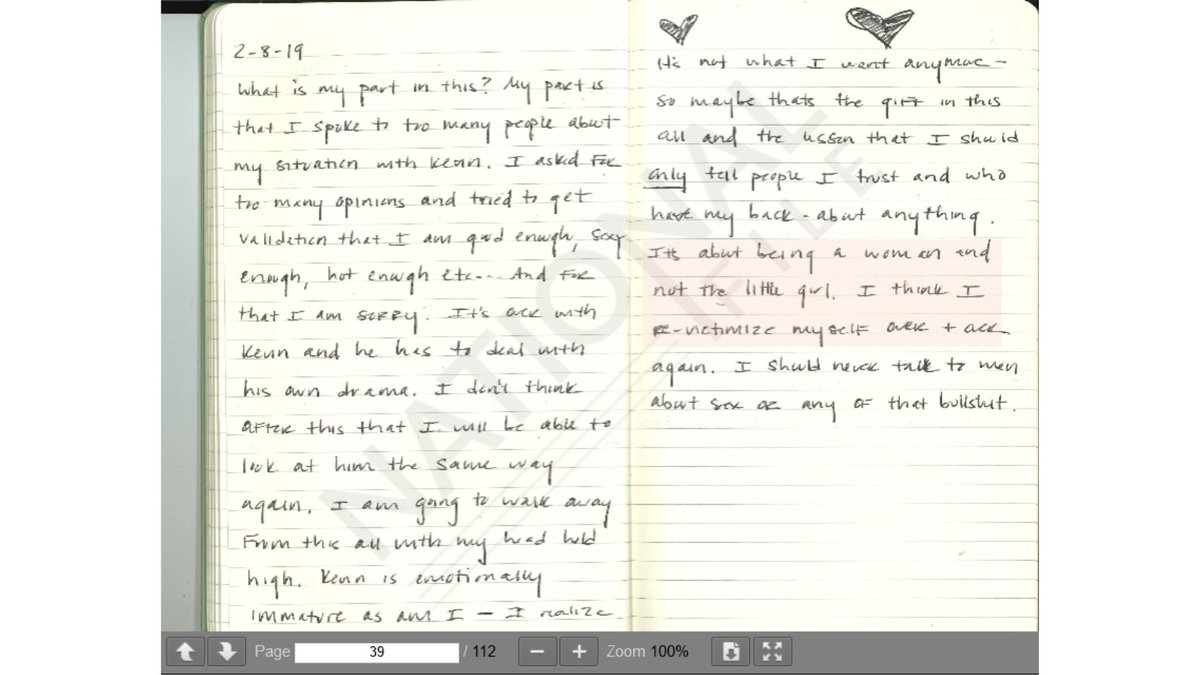 2-8-19
What is my part in this? My part is
that I spoke to too many people about
my situation with Kevin. I asked for
too many opinions and tried to get
validation that I am good enough, sexy
enough, hot enough etc... And for
that I am sorry. It's over with
Kevin and he has to deal with
his own drama. I don't think
after this that I will be able to
look at him the same way
again. I am going to walk away
from this all with my head held
high. Kevin is emotionally
immature as am I — I realize
It's not what I want anymore -
so maybe thats the gift in this
all and the lesson that I should
only tell people I trust and who
have my back - about anything.
Its about being a woman and
not the little girl. I think I
re-victimize myself over + over
again. I should never talk to men
about sex or any of that bullshit.
NATIONAL
FILE
Page 39 / 112 − + Zoom 100%